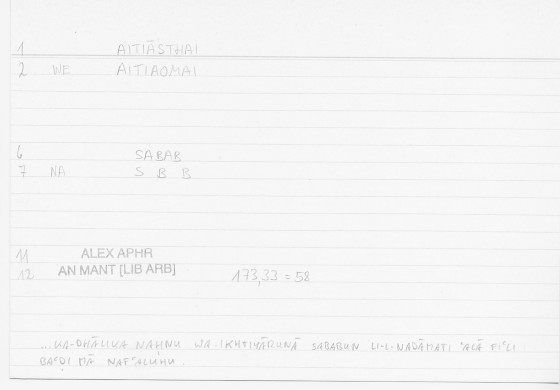 1 AITIĀSTHAI
2 WE AITIAOMAI
6 SABAB
7 NA S B B
11 ALEX APHR
12 AN MANT [LIB ARB] 173,33 = 58
...WA-DHĀLIKA NAḤNU WA-IKHTIYĀRUNĀ SABABUN LI-L-NADĀMATI ʿALĀ FIʿLI
BAʿḌI MĀ NAFʿALUHU.